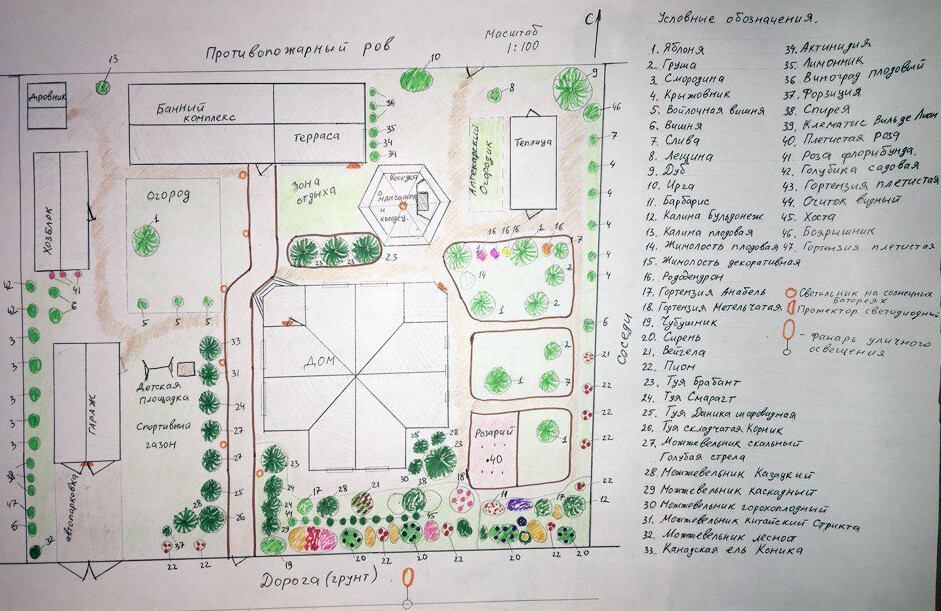 Противопожарный ров
Масштаб
1:100
С
Условные обозначения.
1. Яблоня
2. Груша
3. Смородина
4. Крыжовник
5. Войлочная вишня
6. Вишня
7. Слива
8. Лещина
9. Дуб
10. Ирга
11. Барбарис
12. Калина Бульдонеж
13. Калина плодовая
14. Жимолость плодовая
15. Жимолость декоративная
16. Рододендрон
17. Гортензия Анабель
18. Гортензия Метельчатая
19. Чубушник
20. Сирень
21. Вейгела
22. Пион
23. Туя Брабант
24. Туя Смарагт
25. Туя Даника шаровидная
26. Туя складчатая Корник
27. Можжевельник скальный
Голубая стрела
28 Можжевельник Казацкий
29 Можжевельник каскадный
30 Можжевельник горохоплодный
31. Можжевельник Китайский Стрикта
32. Можжевельник лесной
33. Канадская ель Коника
34. Актинидия
35. Лимонник
36 Виноград плодовый
37. Форзиция
38. Спирея
39. Клематис Вильде Лион
40. Плетистая роза
41. Роза флорибунда
42. Голубика садовая
43. Гортензия плетистая
44. Очиток видный
45. Хоста
46. Боярышник
47. Гортензия плетистая
Светильник на солнечных
батареях
Прожектор светодиодный
- фанарь уличного
освещения
Дровник
Банный
комплекс
Терраса
Хозблок
Огород
Зона
отдыха
Беседка
с мангалом
и колодец.
Аптекарский
Огородик
Теплица
Дом
Соседи
Детская
Площадка
Спортивный
газон
Гараж
автопарковка
Розарий
40
Дорога (грунт)